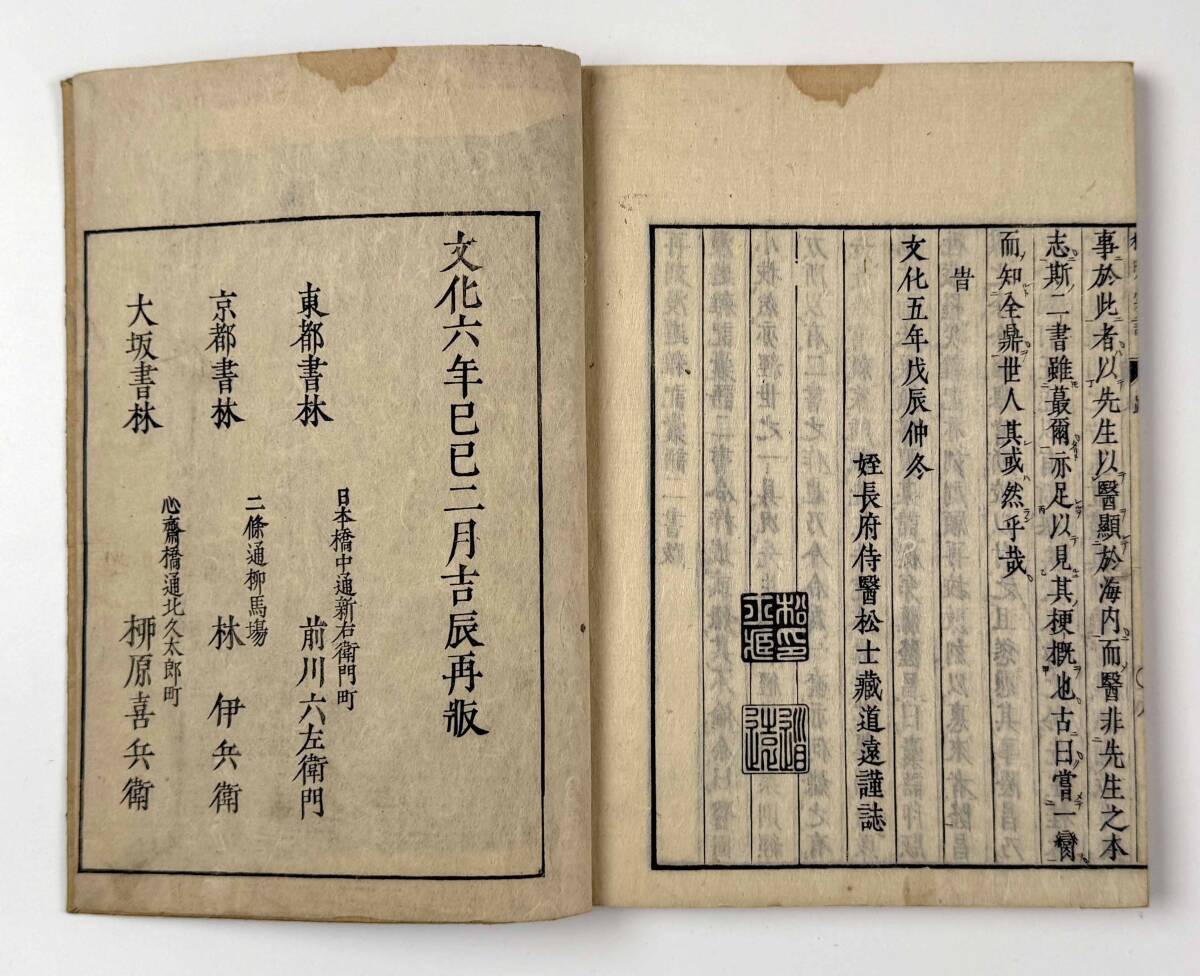 事於此者以先生以醫顯於海内而醫非先生之本
志斯二書雖蕞爾亦足以見其梗概也古曰嘗一臠
而知全鼎世人其或然乎哉
旹
文化五年戊辰仲冬
姪長府侍醫松士藏道遠謹誌
道遠
文化六年巳巳二月吉辰再版
東都書林
日本橋中通新右衛門町
前川六左衛門
京都書林
二條通柳馬場
林伊兵衛
大坂書林
心齋橋通北久太郎町
柳原喜兵衛